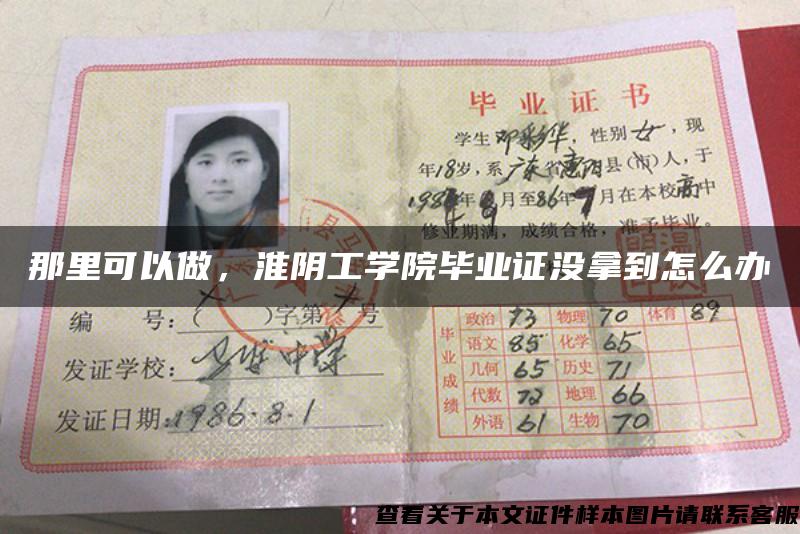 毕业证书
学生邓彩华，性别女，现
年18岁，系广东省惠阳县(市)人，于
198 年9月至86年7月在本校高中
修业期满，成绩合格，准予毕业。
那里可以做，淮阴工学院毕业证没拿到怎么办
编 号：( )字第 号
发证学校：
中学
发证日期：1986.8.1
毕业成绩
政治 73 物理 70 体育 89
语文 85 化学 65
几何 65 历史 71
代数 72 地理 66
外语 61 生物 70
查看关于本文证件样本图片请联系客服